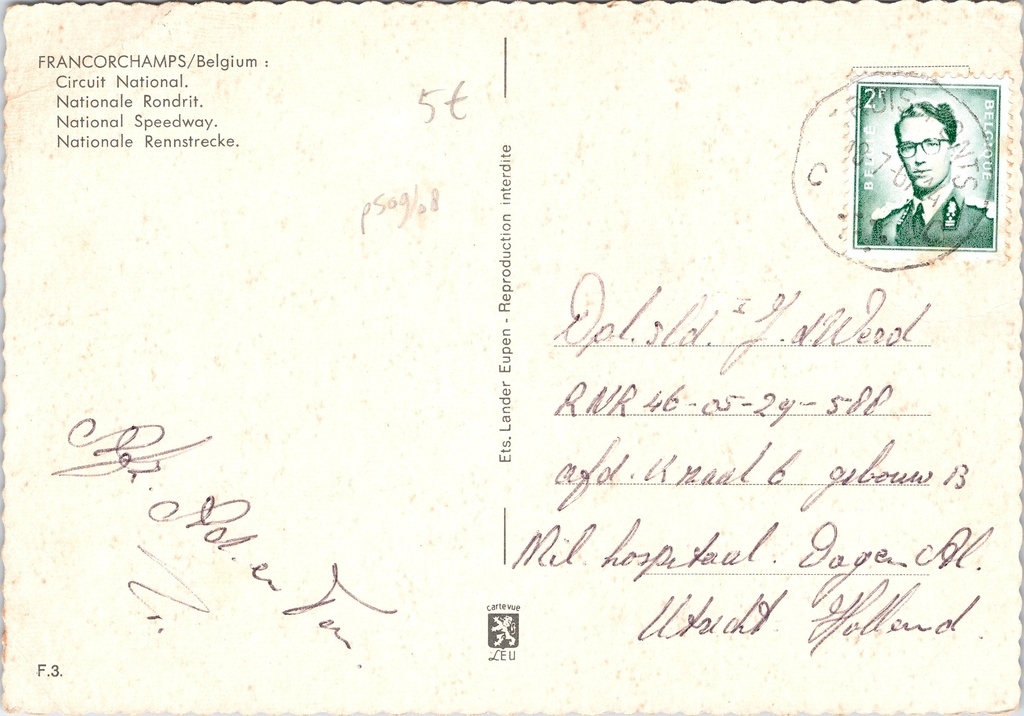 FRANCORCHAMPS/Belgium :
Circuit National.
Nationale Rondrit.
National Speedway.
Nationale Rennstrecke.
5€
p509/08
Ets. Lander Eupen - Reproduction interdite
2F
BELGIË
BELGIQUE
C
Dpl. sld. I J. d Weerd
RNR 46-05-29-588
afd. Knaal 6 gebouw B
Mil. hospitaal. Al.
Utrecht. Holland.
Ad en
cartevue
LEU
F.3.